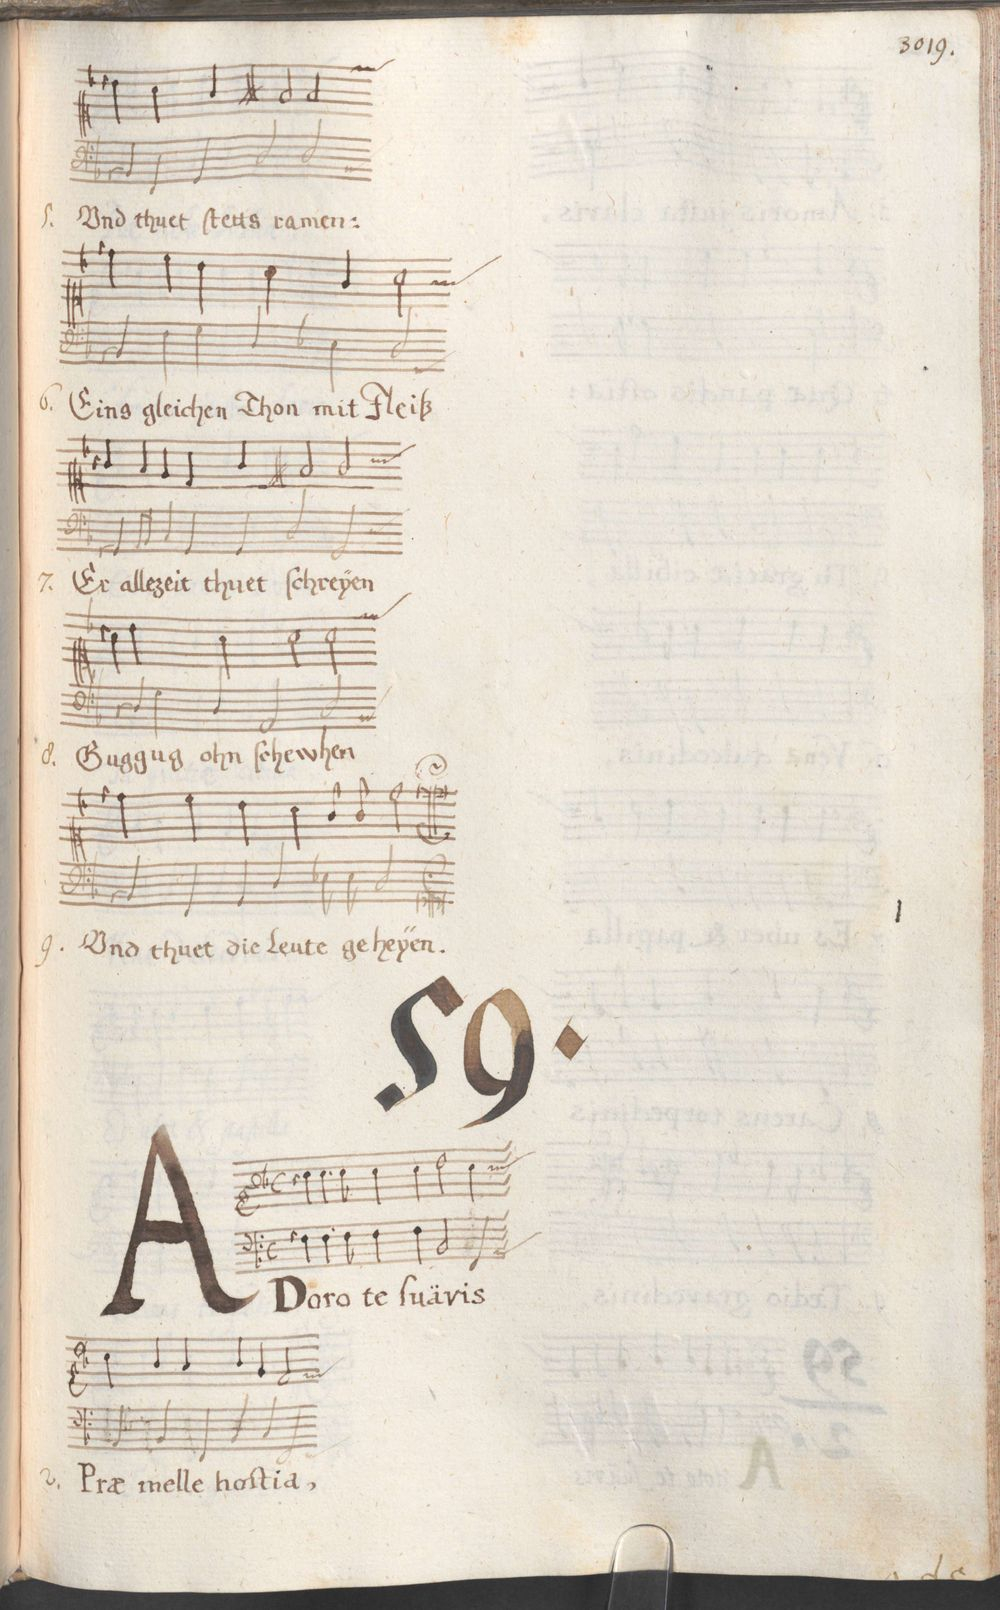 3019.
5. Vnd thuet stetts ramen:
6. Eins gleichen Thon mit Fleiß
7. Er allezeit thuet schreÿen
8. Guggug ohn schewhen
9. Vnd thuet die Leute geheÿen.
59.
ADoro te suävis
2. Præ melle hostia,